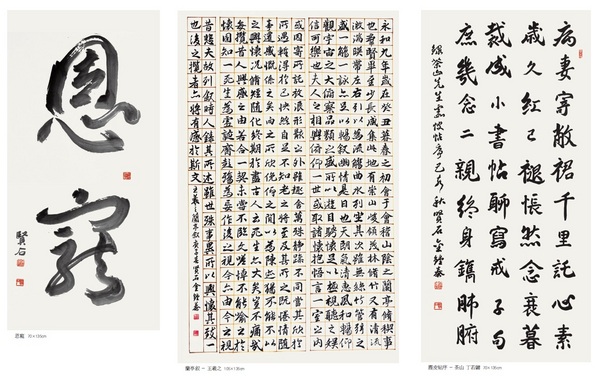 恩
寵
賢石
恩寵 70×135cm
永和九年歲在癸丑暮春之初會于會稽山陰之蘭亭脩稧事
也羣賢畢至少長咸集此地有崇山峻領茂林脩竹又有清流
激湍暎帶左右引以為流觴曲水列坐其次雖無絲竹管弦之
盛一觴一詠亦足以暢叙幽情是日也天朗氣清惠風和暢仰
觀宇宙之大俯察品類之盛所以遊目騁懷足以極視聽之娛
信可樂也夫人之相與俯仰一世或取諸懷抱悟言一室之內
或因寄所託放浪形骸之外雖趣舍萬殊靜躁不同當其欣於
所遇暫得於己快然自足不知老之將至及其所之既倦情隨
事遷感慨係之矣向之所欣俛仰之間以為陳迹猶不能不以
之興懷況脩短隨化終期於盡古人云死生亦大矣豈不痛哉
每攬昔人興感之由若合一契未嘗不臨文嗟悼不能喻之於
懷固知一死生為虛誕齊彭殤為妄作後之視今亦由今之視
昔悲夫故列叙時人錄其所述雖世殊事異所以興懷其致一
也後之攬者亦將有感於斯文
賢石金鍾泰
蘭亭叙 - 王羲之
病妻寄敝裙千里託心素
歲久紅已褪悵然念衰暮
裁成小書帖聊寫戒子句
庶幾念二親終身鐫肺腑
錄茶山先生霞帔帖序己亥秋賢石金鍾泰
霞帔帖序 - 茶山 丁若鏞 70×135cm